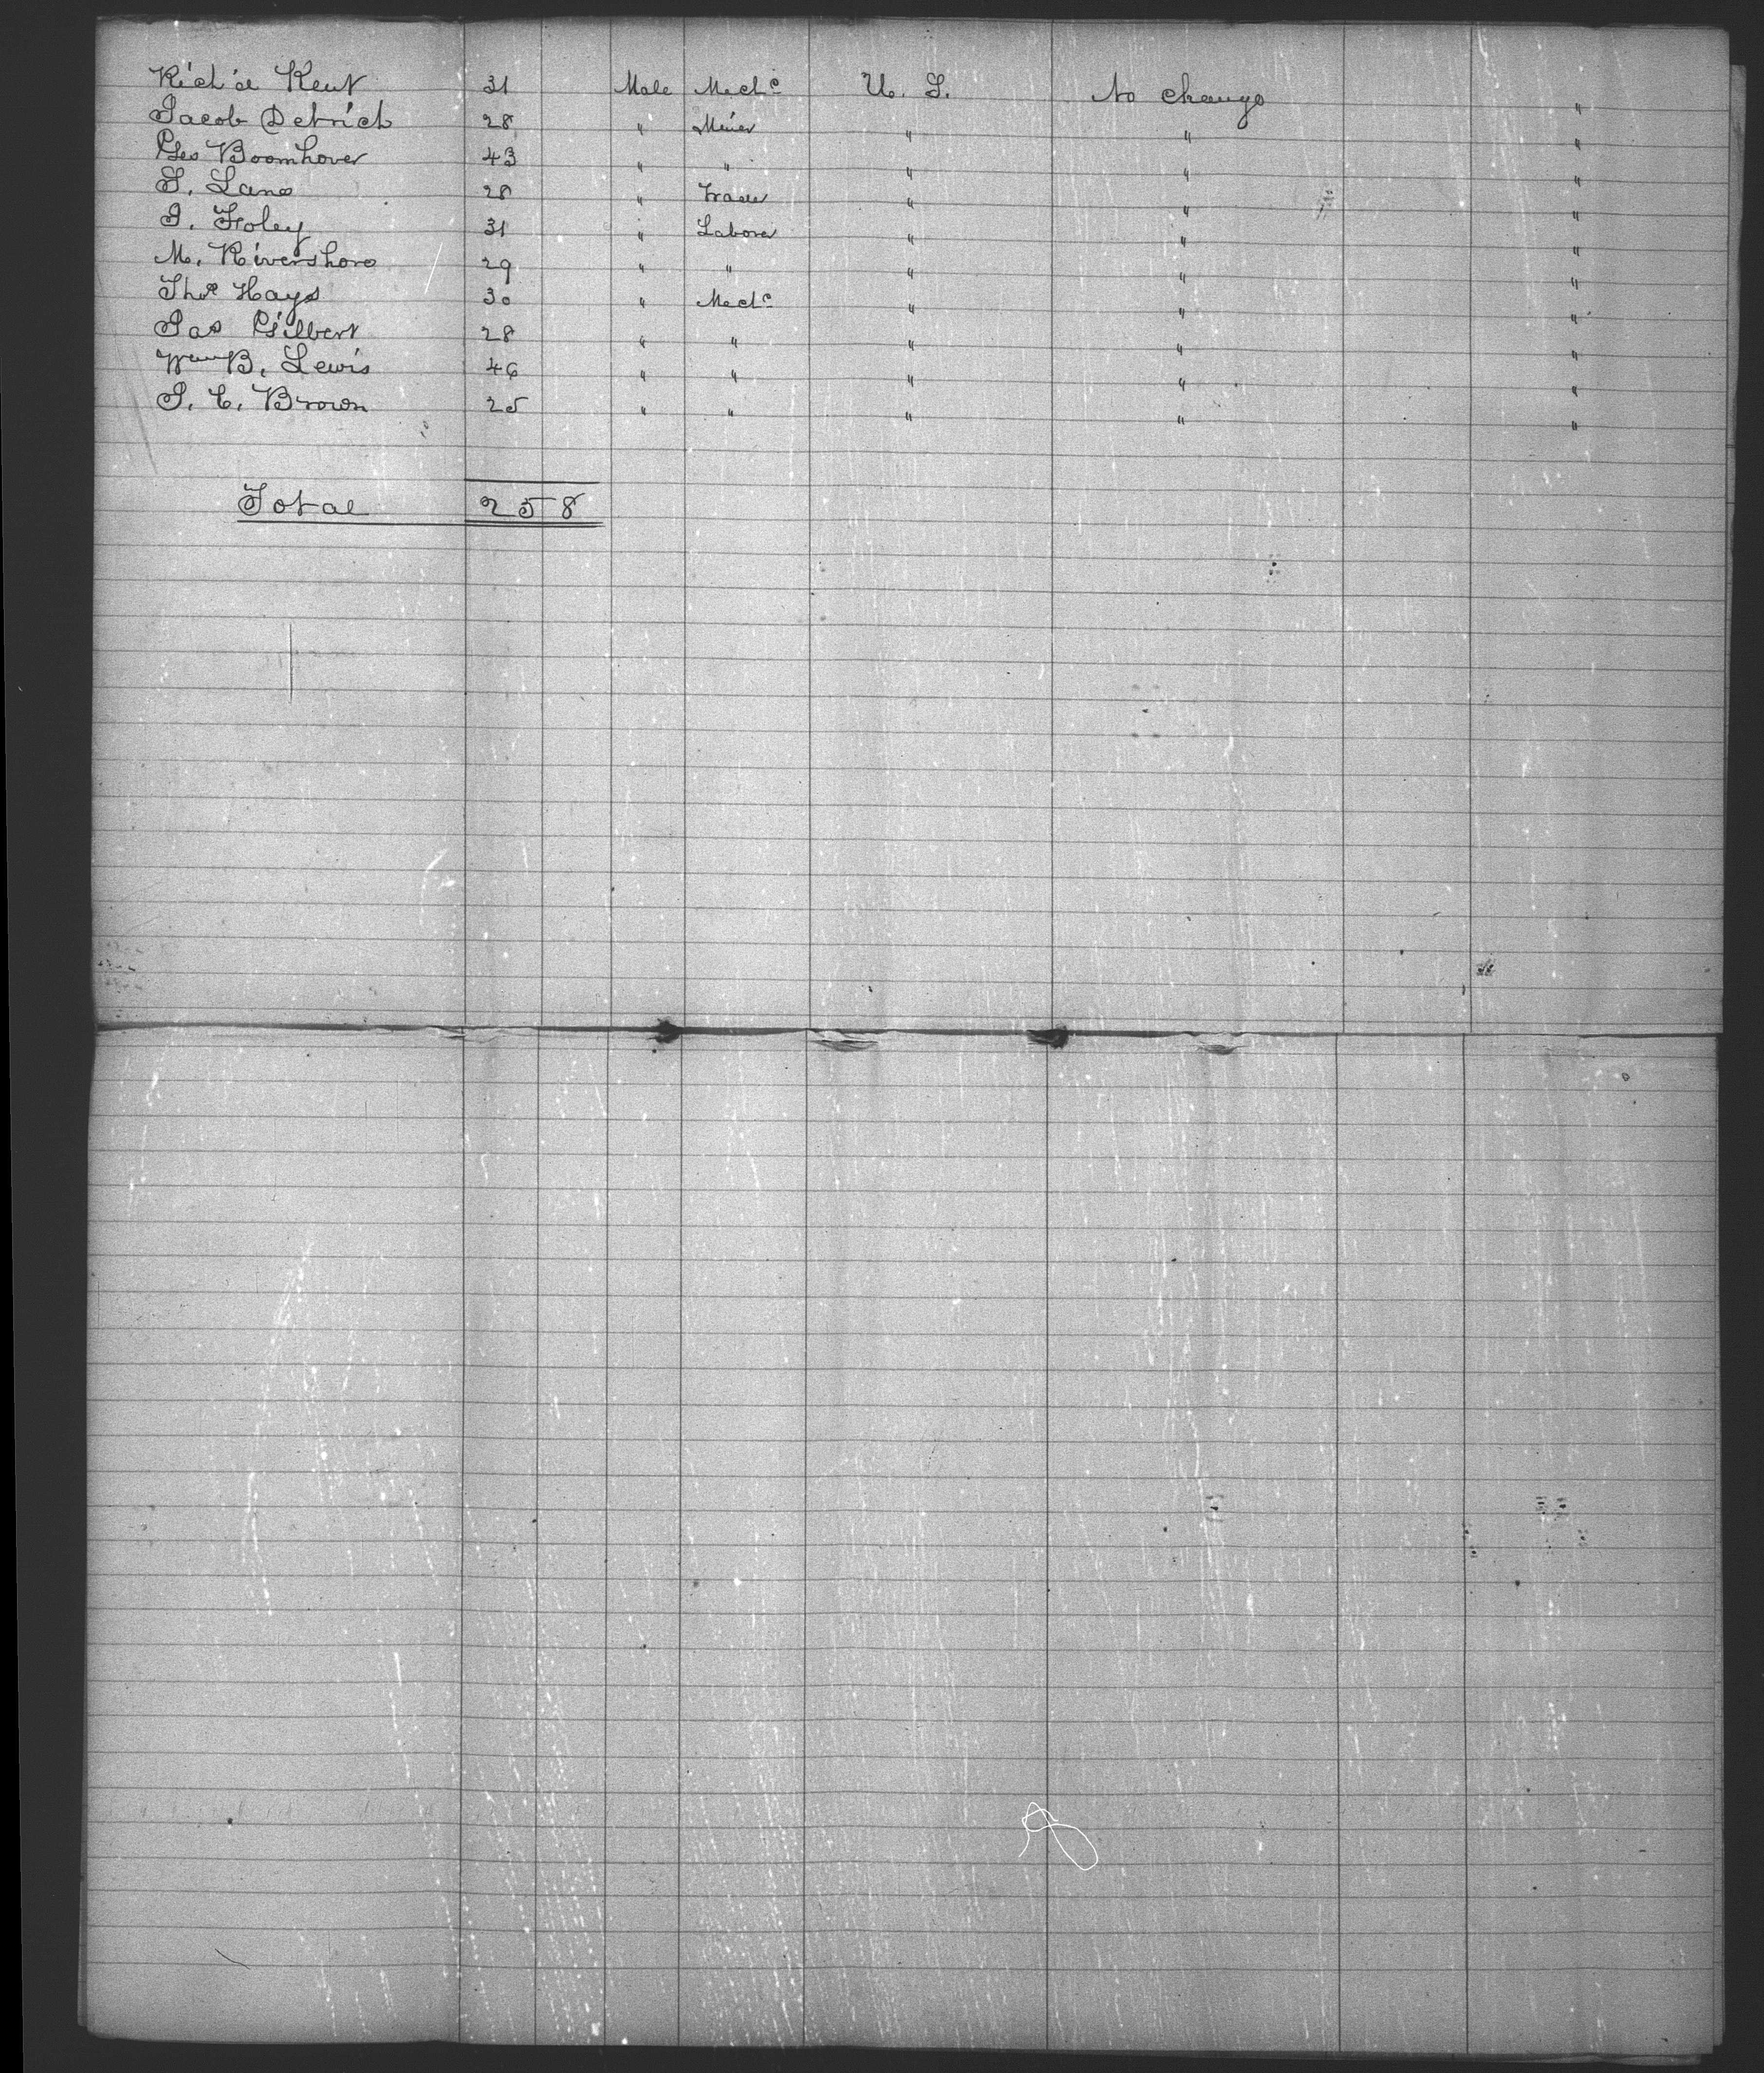 Rich'd Kent 31 Male Mech^c U. S. No change "
Jacob Detrich 28 " Miner " " "
Geo Boomhover 43 " " " " "
S. Lane 28 " Trader " " "
J. Foley 31 " Laborer " " "
M. Rivershore 29 " " " " "
Thos Hays 30 " Mech^c " " "
Jas Gilbert 28 " " " " "
Wm B. Lewis 46 " " " " "
J. C. Brown 25 " " " " "
Total 258